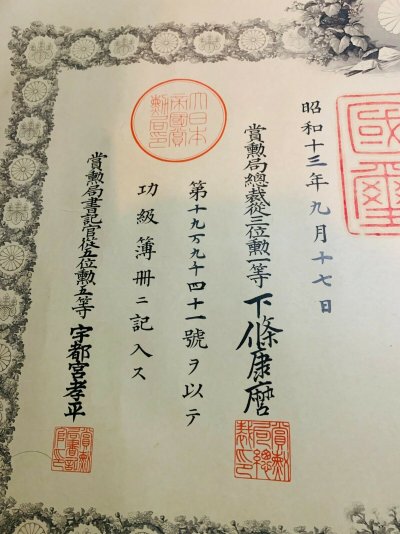 昭和十三年九月十七日
國璽
賞勲局總裁從三位勲一等 下條康麿
賞勲局總裁之印
第十九万九千四十一號ヲ以テ
功級簿冊ニ記入ス
大日本帝國賞勲局印
賞勲局書記官從五位勲五等 宇都宮孝平
賞勲局書記官印